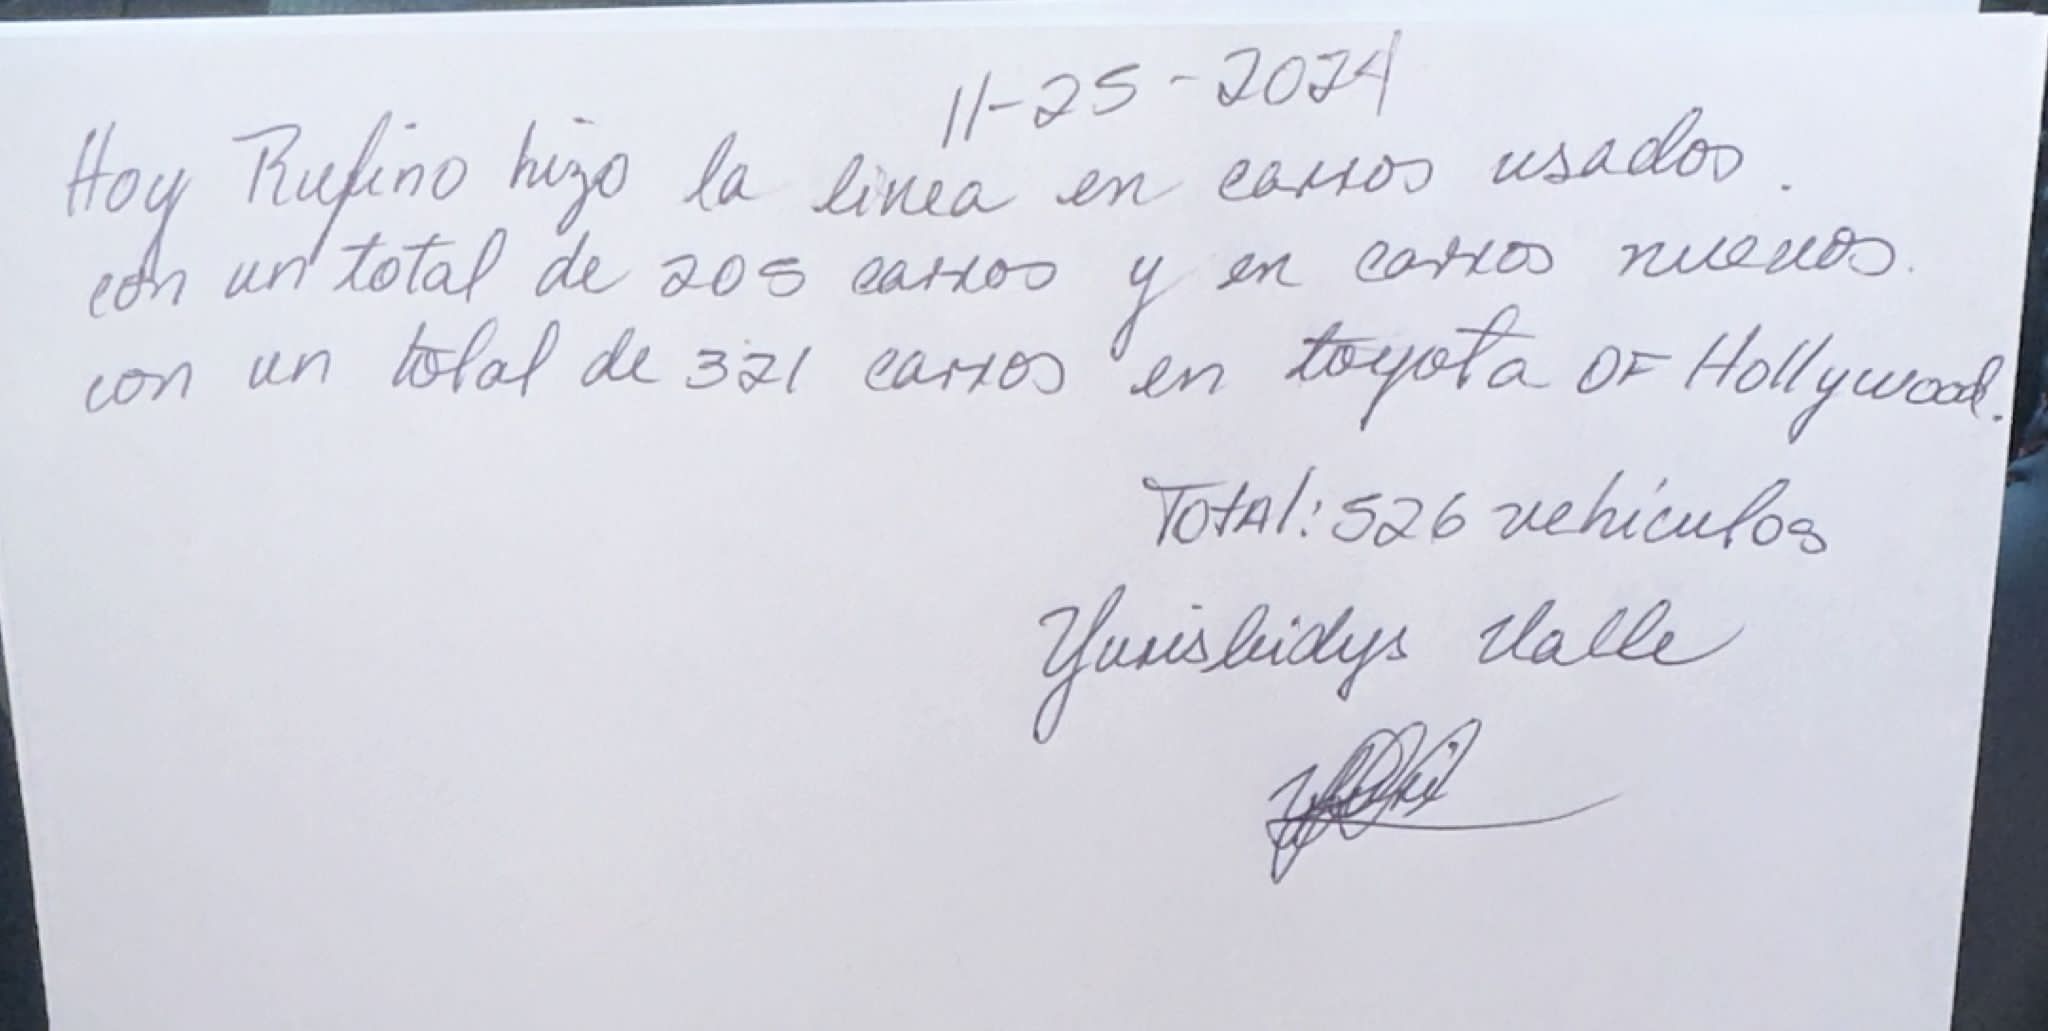 11-25-2024
Hoy Rufino hizo la linea en carros usados.
con un total de 205 carros y en carros nuevos.
con un total de 321 carros en toyota OF Hollywood.
Total: 526 vehículos
Yurisleidys Valle